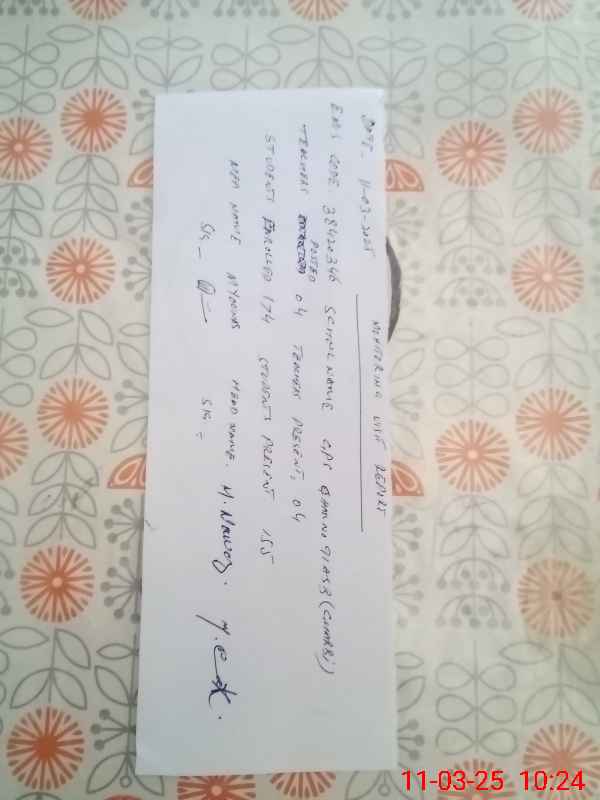 MONITORING VISIT REPORT
DATE - 11-03-2025
EMIS CODE 38420346 SCHOOL NAME GPS CHAK NO 91ASB (CHARBI)
POSTED
TEACHERS 04 TEACHERS PRESENT, 04
STUDENTS ENROLLED 174 STUDENTS PRESENT 155
MEA NAME M YOUNAS HEAD NAME. M. Nawaz.
SIG - SIG -
11-03-25 10:24